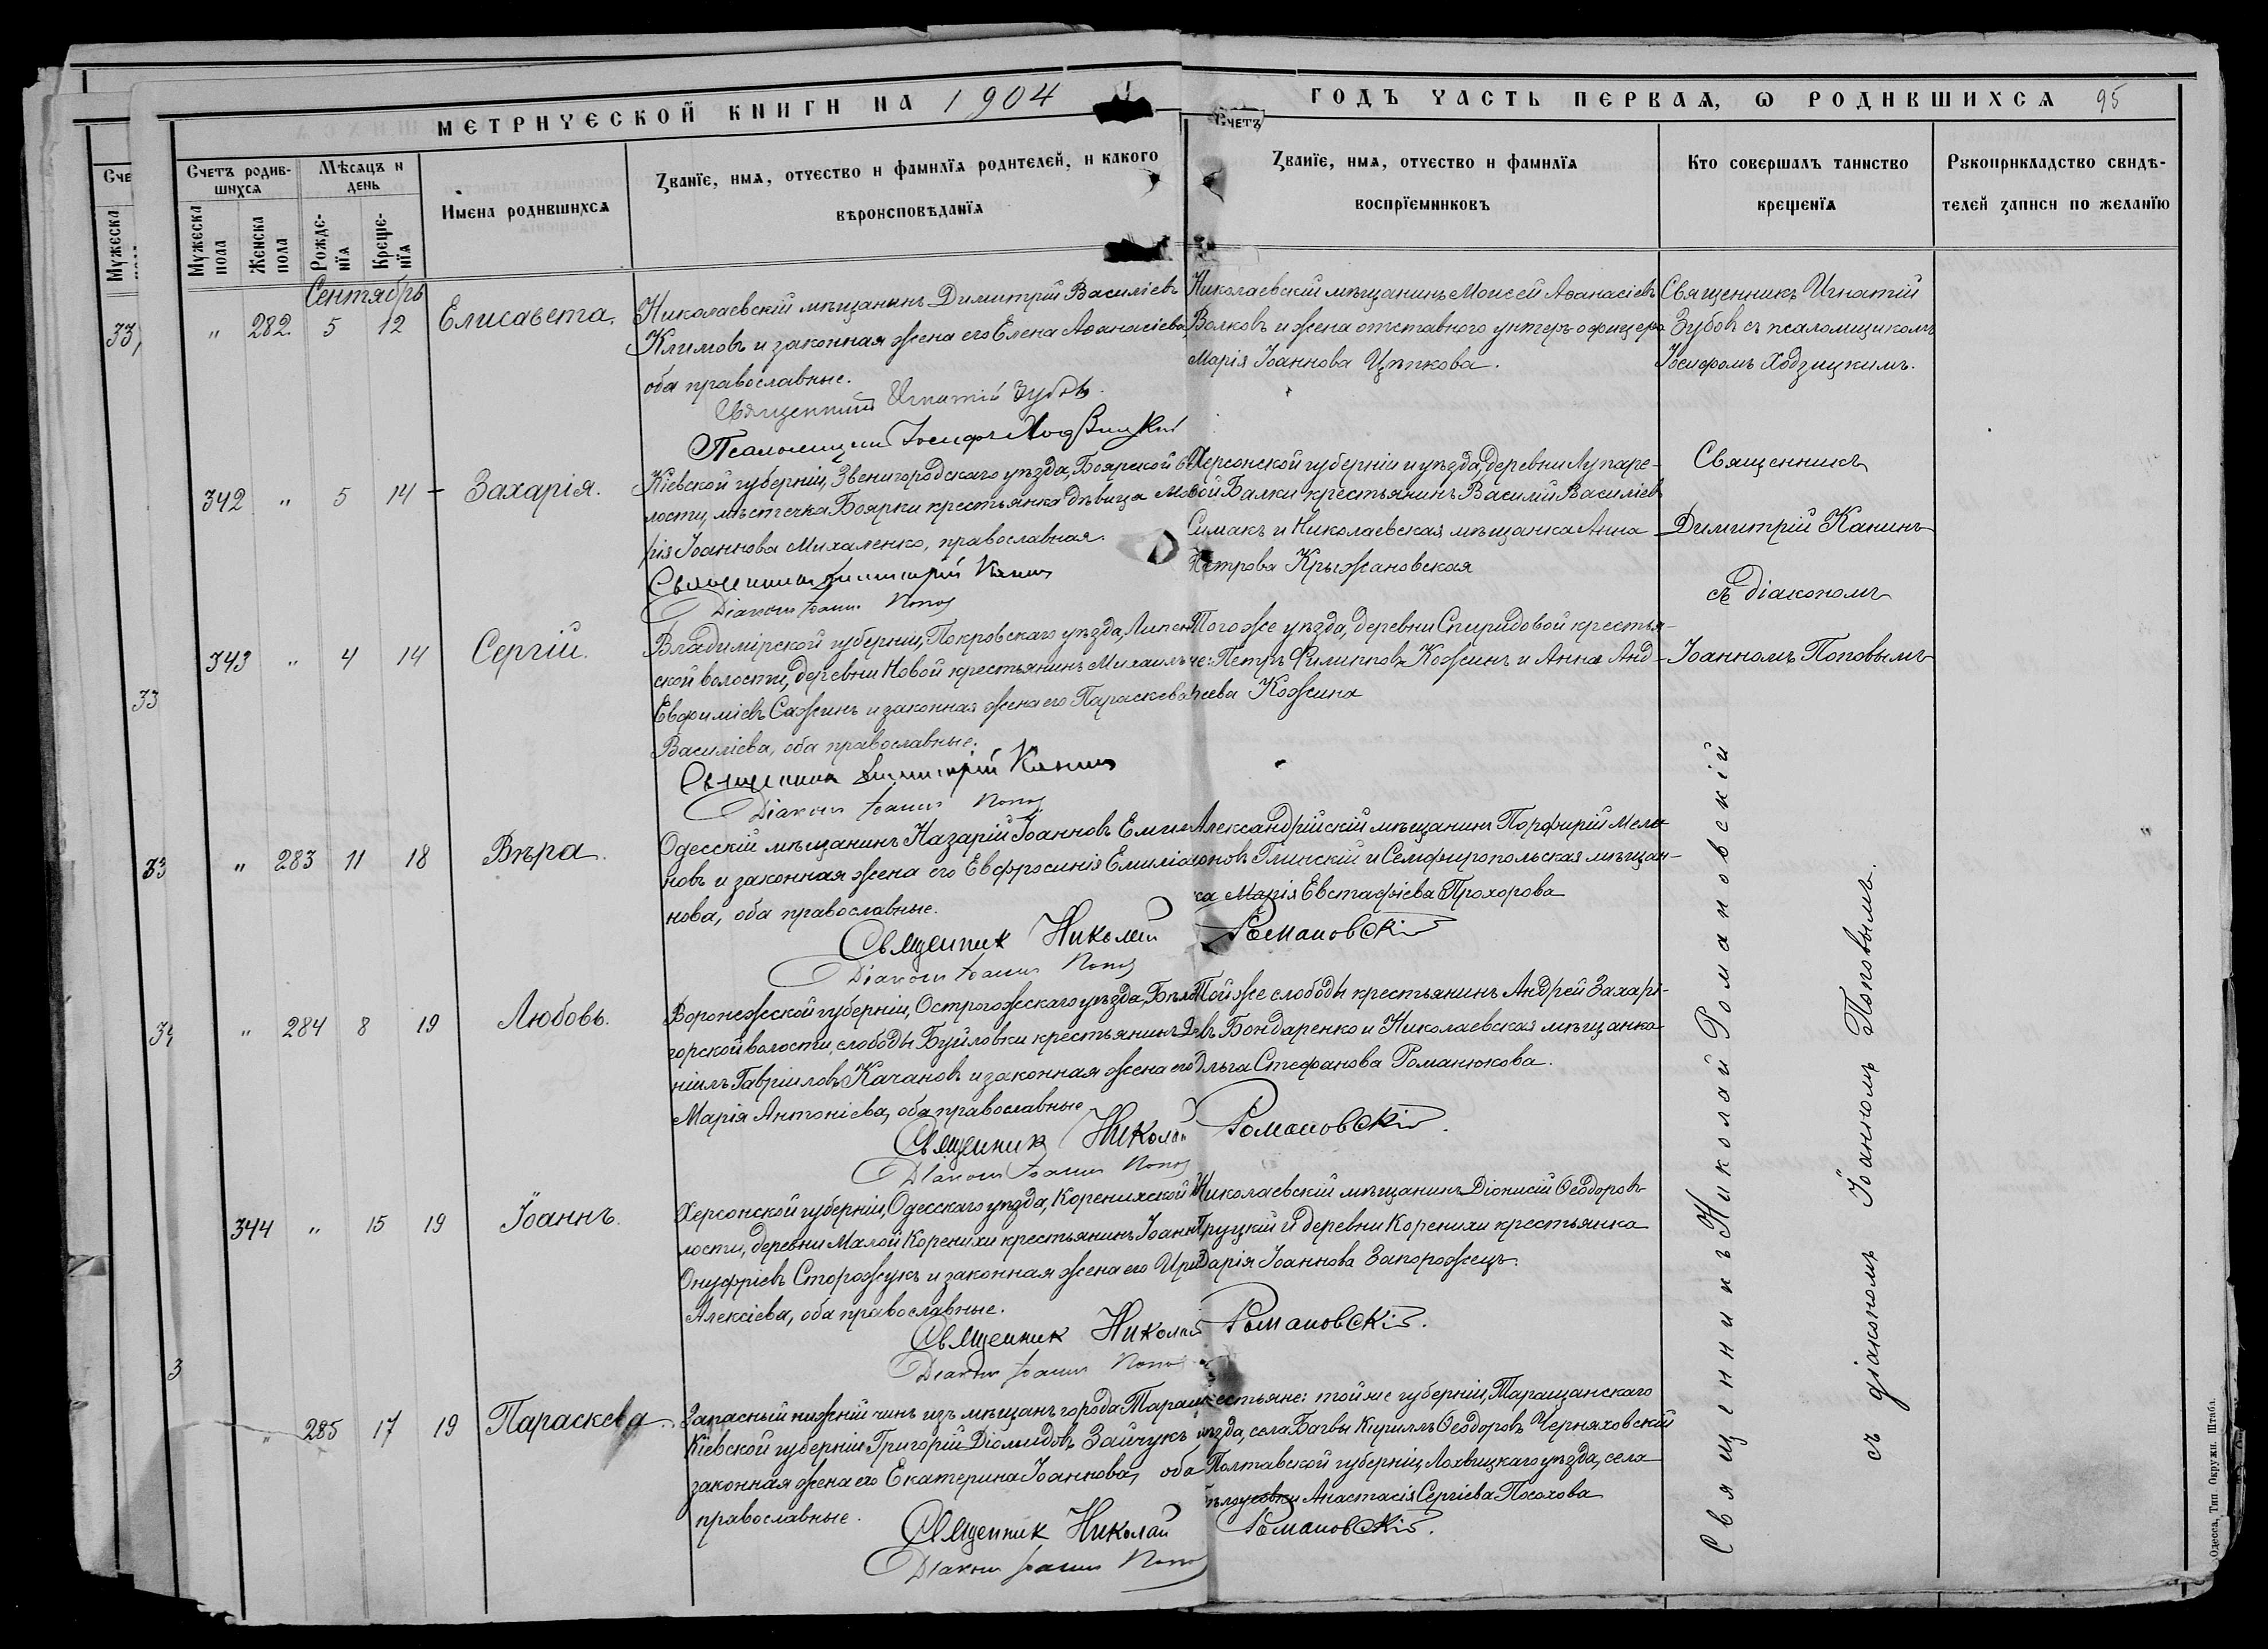 МЕТРИЧЕСКОЙ КНИГИ НА 1904
ГОДЪ ЧАСТЬ ПЕРВАЯ, Ѡ РОДИВШИХСЯ 95
Счетъ родив-
шихся
Мѣсяцъ и
день
Имена родившихся
Званїе, имя, отчество и фамилїя родителей, и какого
вѣроисповѣданїя
Счетъ
Званїе, имя, отчество и фамилїя
воспрїемниковъ
Кто совершалъ таинство
крещенїя
Рукоприкладство свидѣ-
телей записи по желанїю
Мужеска
пола
Женска
пола
Рожде-
нїя
Креще-
нїя
Сентябрь
" 282 5 12 Елисавета.
Николаевскій мѣщанинъ Димитрій Василіевъ
Климовъ и законная жена его Елена Аѳанасіева,
оба православные.
Священникъ Игнатій Зубовъ
Псаломщикъ Іосифъ Ходзицкій
Николаевскій мѣщанинъ Моисей Аѳанасіевъ
Волковъ и жена отставного унтеръ офицера
Марія Іоаннова Цѣпкова.
Священникъ Игнатій
Зубовъ съ псаломщикомъ
Іосифомъ Ходзицкимъ.
342 " 5 14 Захарія.
Кіевской губерніи, Звенигородскаго уѣзда, Боярской во-
лости, мѣстечка Боярки крестьянка дѣвица Ма-
рія Іоаннова Михаленко, православная.
Священникъ Димитрій Канинъ
Діаконъ Іоаннъ Поповъ
Херсонской губерніи и уѣзда, деревни Лупаре-
вой Балки крестьянинъ Василій Василіевъ
Симакъ и Николаевская мѣщанка Анна
Петрова Крыжановская
Священникъ
Димитрій Канинъ
съ діакономъ
Іоанномъ Поповымъ
343 " 4 14 Сергій.
Владимірской губерніи, Покровскаго уѣзда, Липен-
ской волости, деревни Новой крестьянинъ Михаилъ
Евфиміевъ Сажинъ и законная жена его Параскева
Василіева, оба православные.
Священникъ Димитрій Канинъ
Діаконъ Іоаннъ Поповъ
Того же уѣзда, деревни Спиридовой крестья-
не: Петръ Филипповъ Кожинъ и Анна Анд-
реева Кожина
" 283 11 18 Вѣра.
Одесскій мѣщанинъ Назарій Іоанновъ Емилія-
новъ и законная жена его Евфросинія Емилія-
нова, оба православные.
Священник Николай Романовскій
Діаконъ Іоаннъ Поповъ
Александрійскій мѣщанинъ Порфирій Меле-
оновъ Глинскій и Семфиропольская мѣщан-
ка Марія Евстафіева Прохорова
" 284 8 19 Любовь.
Воронежской губерніи, Острогожскаго уѣзда, Бѣло-
горской волости, слободы Буйловки крестьянинъ Да-
ніилъ Гавріиловъ Качановъ и законная жена его
Марія Антоніева, оба православные
Священник Николай Романовскій.
Діаконъ Іоаннъ Поповъ
Той же слободы крестьянинъ Андрей Захарі-
евъ Бондаренко и Николаевская мѣщанка
Ольга Стефанова Романюкова.
344 " 15 19 Іоаннъ.
Херсонской губерніи, Одесскаго уѣзда, Коренихской во-
лости, деревни Малой Коренихи крестьянинъ Іоаннъ
Онуфріевъ Сторожукъ и законная жена его Ири
Алексіева, оба православные.
Священник Николай Романовскій.
Діаконъ Іоаннъ Поповъ
Николаевскій мѣщанинъ Діонисій Ѳеодоровъ
Труцкій и деревни Коренихи крестьянка
Дарія Іоаннова Запорожецъ.
" 285 17 19 Параскева.
Запасный нижній чинъ изъ мѣщанъ города Таращи
Кіевской губерніи Григорій Діомидовъ Зайчукъ и
законная жена его Екатерина Іоаннова, оба
православные.
Священник Николай Романовскій.
Діаконъ Іоаннъ Поповъ
крестьяне: той же губерніи, Таращанскаго
уѣзда, села Багвы Кириллъ Ѳеодоровъ Черняховскій
Полтавской губерніи, Лохвицкаго уѣзда, села
Бѣлоусовки Анастасія Сергіева Посохова
Священникъ Николай Романовскій
съ діакономъ Іоанномъ Поповымъ.
Одесса, Тип. Окружн. Штаба.